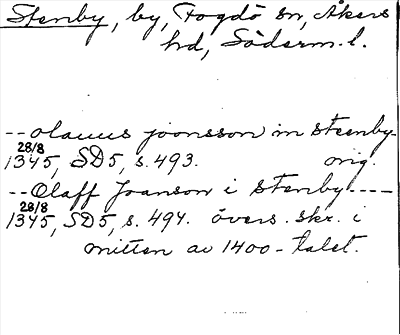 Stenby, by, Fogdö sn, Åkers
hd, Söderm. l.
-- olauus joonsson in steenby
28/8
1345, SD5, s. 493. orig.
-- Olaff Joanson i Stenby ----
28/8
1345, SD5, s. 494. övers. skr. i
mitten av 1400-talet.